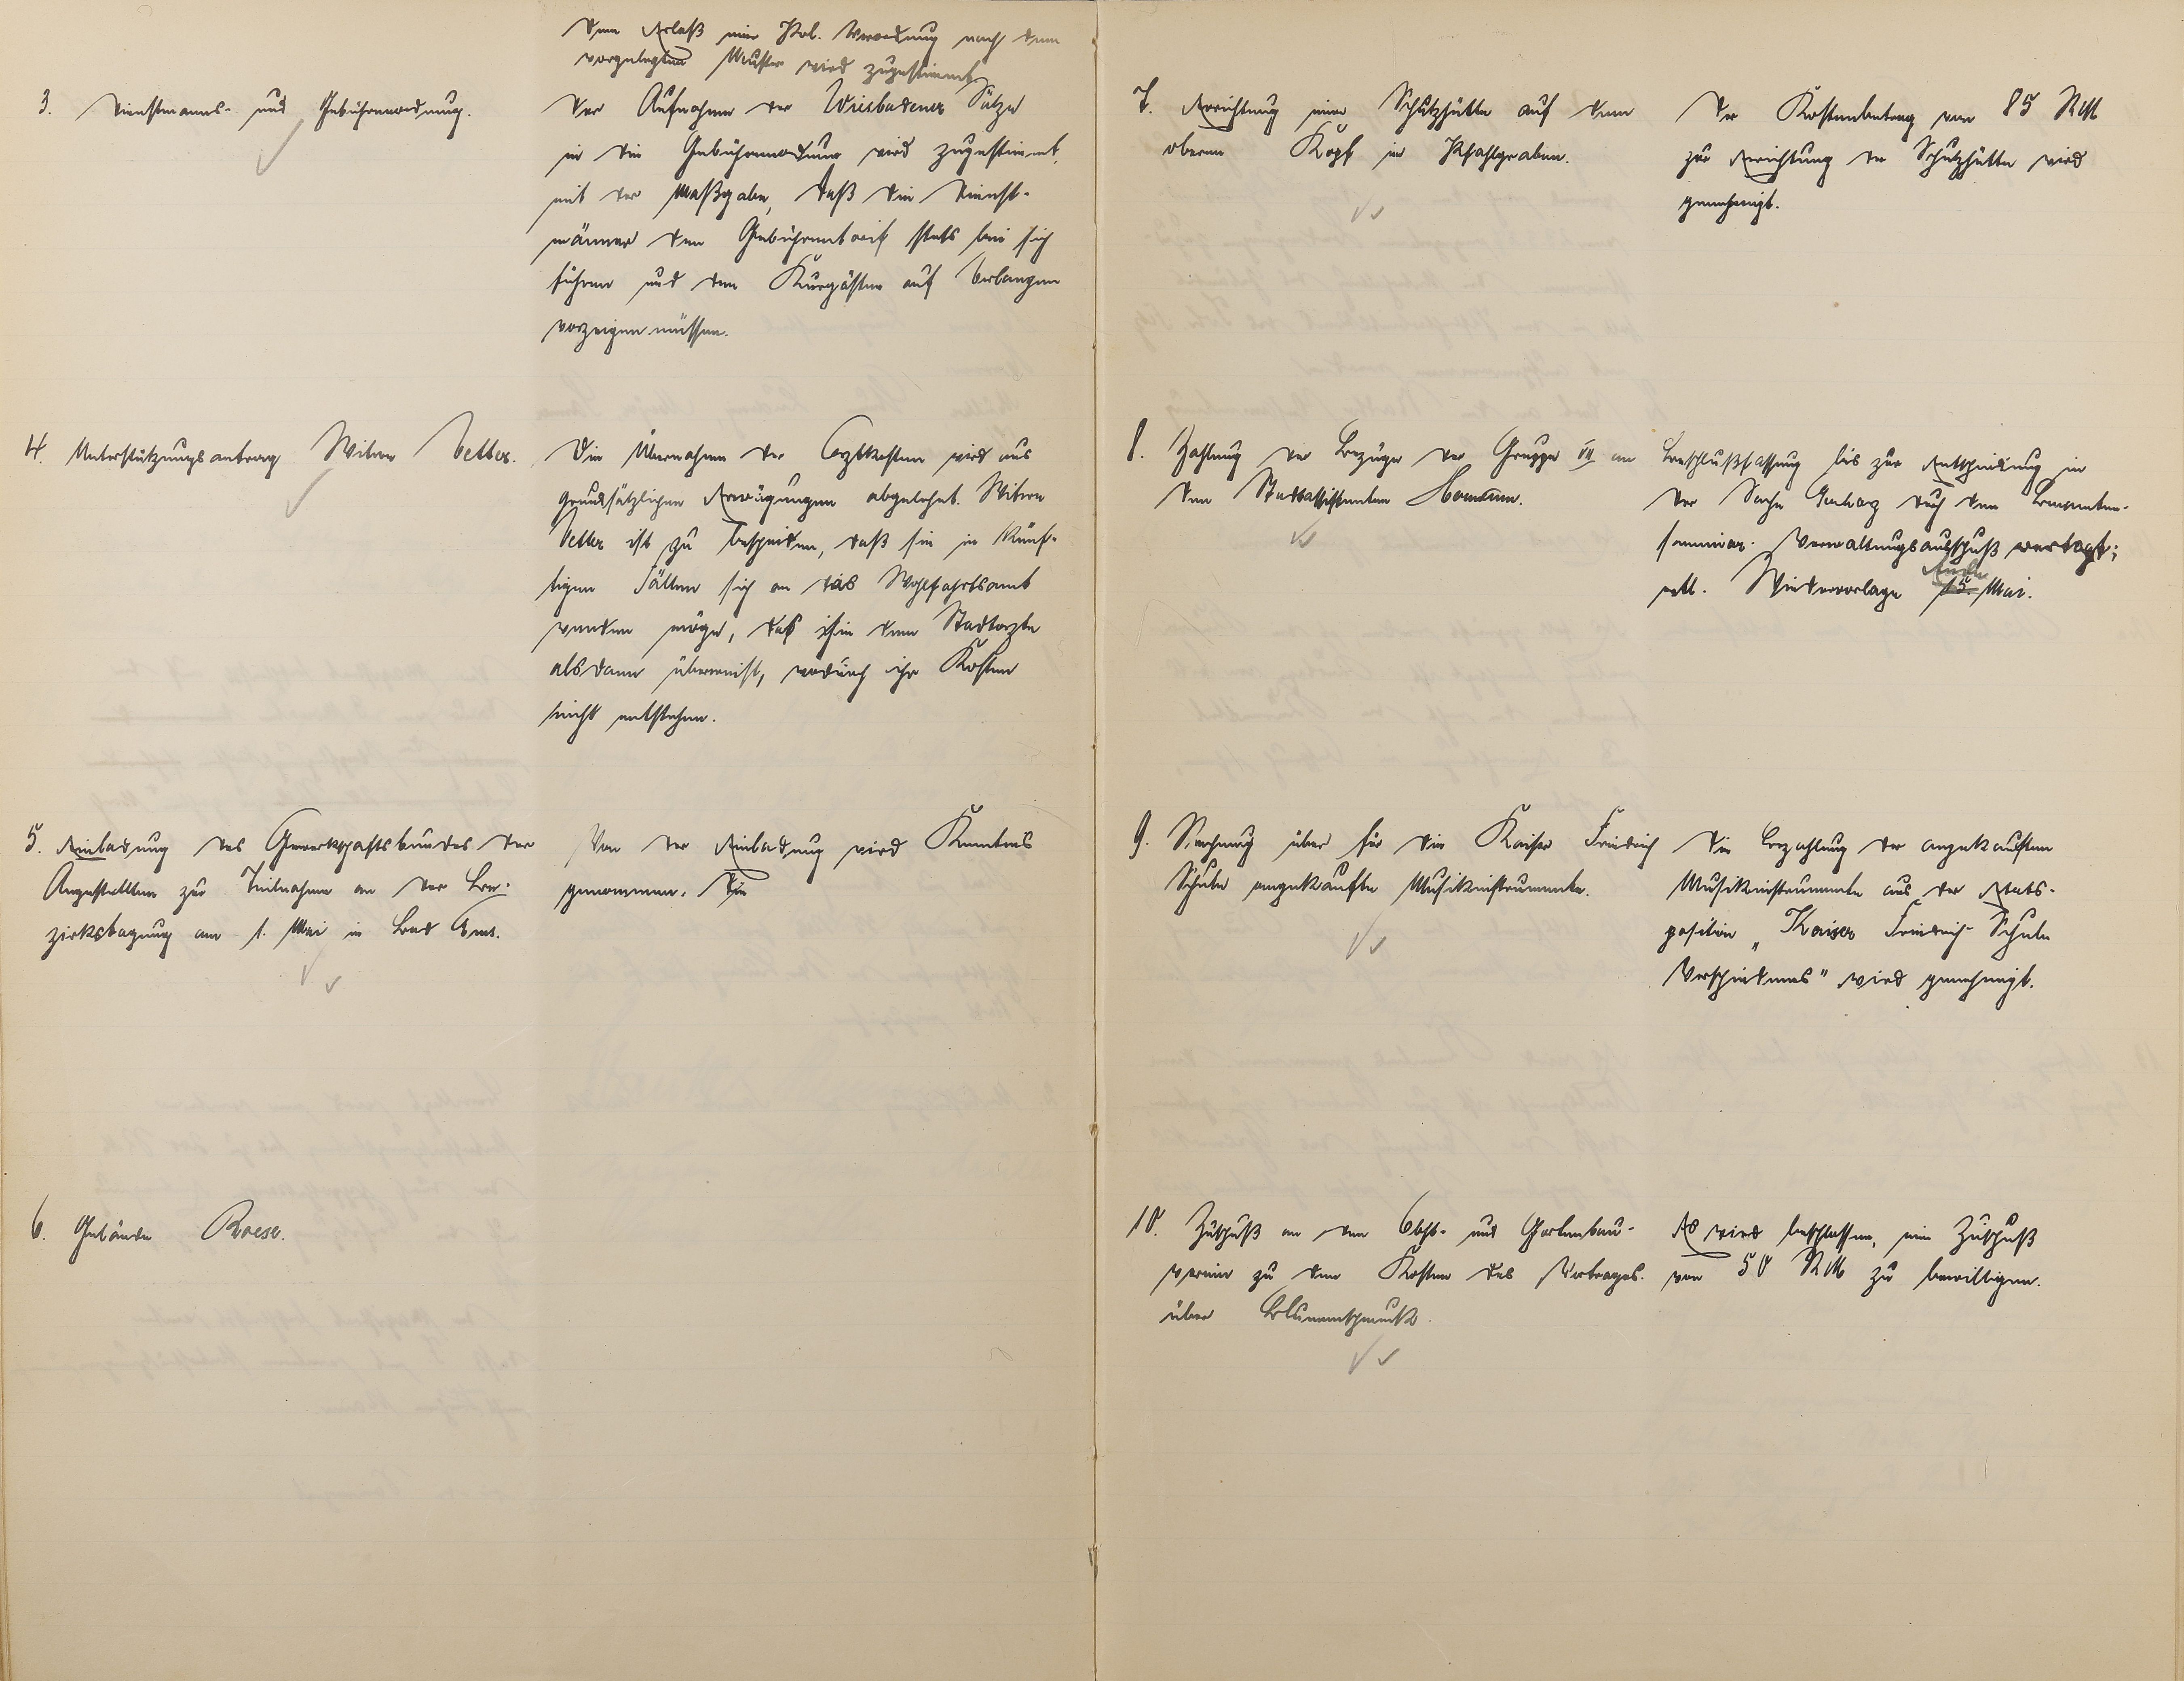 Dem Erlaß einer Pol. Verordnung nach dem
vorgelegten Muster wird zugestimmt.
3. Dienstmanns- und Gebührenordnung.
Der Aufnahme der Wiesbadener Sätze
in die Gebührenordnung wird zugestimmt,
mit der Maßgabe, daß die Dienst-
männer den Gebührentarif stets bei sich
führen und den Kurgästen auf Verlangen
vorzeigen müssen.
4. Unterstützungsantrag Witwe Vetter.
Die Übernahme der Arztkosten wird aus
grundsätzlichen Erwägungen abgelehnt. Witwe
Vetter ist zu bescheiden, daß sie in künf-
tigen Fällen sich an das Wohlfahrtsamt
wenden möge, das sie dem Stadtarzte
alsdann überweist, wodurch ihr Kosten
nicht entstehen.
5. Einladung des Gewerkschaftsbundes der
Angestellten zur Teilnahme an der Be-
zirkstagung am 1. Mai in Bad Ems.
Von der Einladung wird Kenntnis
genommen. Die
6. Gebäude Roese.
7. Errichtung einer Schutzhütte auf dem
oberen Kopf im Pfahlgraben.
Der Kostenbetrag von 85 RM
zur Errichtung der Schutzhütte wird
genehmigt.
8. Zahlung der Bezüge der Gruppe VII an
den Stadtassistenten
Beschlußfassung bis zur Entscheidung in
der Sache durch den Beamten-
seminar. Verwaltungsausschuß vertagt;
evtl. Wiedervorlage 15. Ende Mai.
9. Rechnung über für die Kaiser Friedrich
Schule angekaufte Musikinstrumente.
Die Bezahlung der angekauften
Musikinstrumente aus der Etats-
position „Kaiser Friedrich-Schule
Verschiedenes" wird genehmigt.
10. Zuschuß an den Obst- und Gartenbau-
verein zu den Kosten des Vortrages
über Blumenschmuck.
Es wird beschlossen, ein Zuschuß
von 50 RM zu bewilligen.